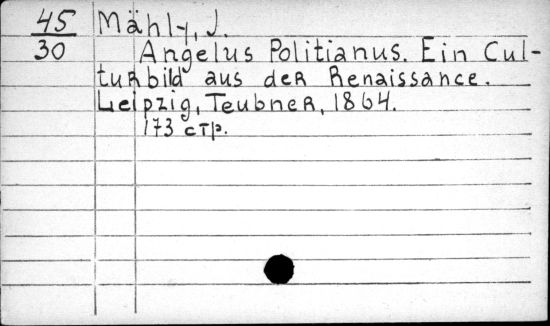 45
30
Mähly, J.
Angelus Politianus. Ein Cul-
turbild aus der Renaissance.
Leipzig, Teubner, 1864.
173 стр.